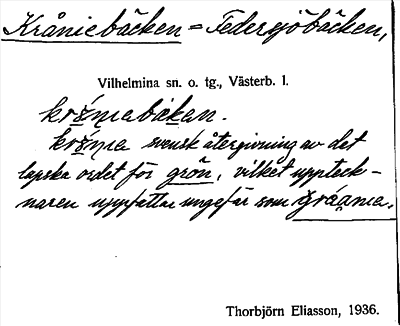 Kråniebäcken = Federsjöbäcken,
Vilhelmina sn. o. tg., Västerb. l.
svensk återgivning av det
lapska ordet för grön, vilket uppteck-
naren uppfattar ungefär som
Thorbjörn Eliasson, 1936.